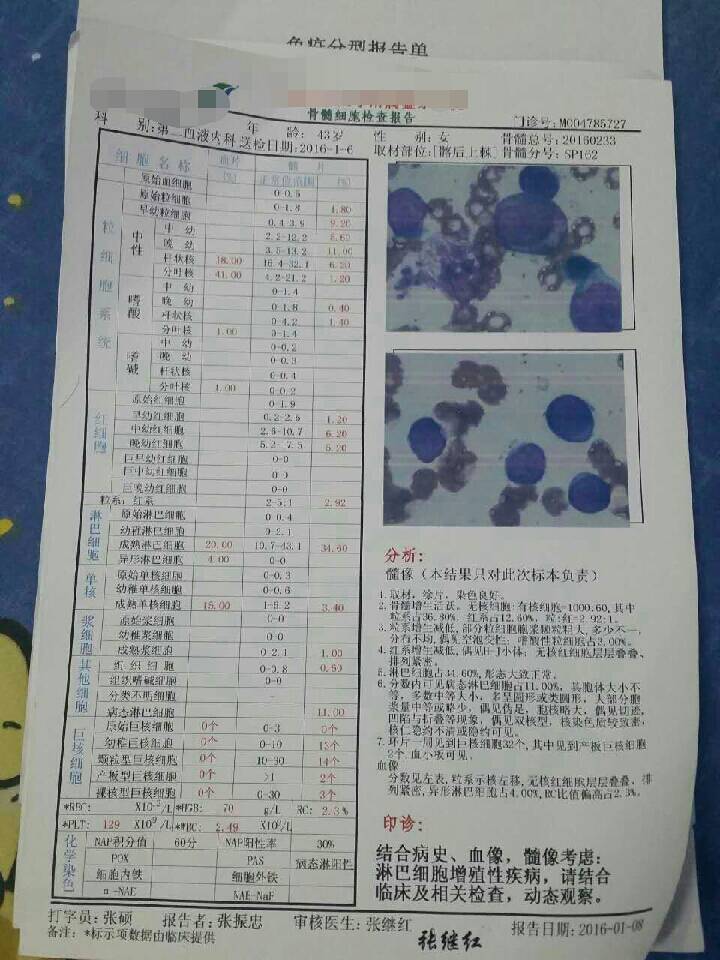 免疫分型报告单
骨髓细胞检查报告
科 别:第二血液内科 年 龄: 43岁 性 别:女 门诊号:MC04785727
送检日期:2016-1-6 取材部位:[髂后上棘] 骨髓总号:20160233
骨髓分号: SP162
细胞名称 血片 髓片
(%) 正常值范围 (%)
粒细胞系统
原始血细胞 0-0.5
原始粒细胞 0-1.8 4.80
早幼粒细胞 0.4-3.9 9.20
中性
中 幼 2.2-12.2 8.60
晚 幼 3.5-13.2 11.00
杆状核 18.00 16.4-32.1 6.20
分叶核 41.00 4.2-21.2 1.20
嗜酸
中 幼 0-1.4
晚 幼 0-1.8 0.40
杆状核 0-4.2 1.40
分叶核 1.00 0-1.4
嗜碱
中 幼 0-0.2
晚 幼 0-0.3
杆状核 0-0.4
分叶核 1.00 0-0.2
红细胞
原始红细胞 0-1.9
早幼红细胞 0.2-2.6 1.20
中幼红细胞 2.6-10.7 6.20
晚幼红细胞 5.2-7.5 5.20
巨早幼红细胞 0-0
巨中幼红细胞
巨晚幼红细胞 0-0
粒系: 红系 2-5.1 2.92
淋巴细胞
原始淋巴细胞 0-0.4
幼稚淋巴细胞 0-2.1
成熟淋巴细胞 20.00 10.7-43.1 34.60
异形淋巴细胞 4.00 0-0
单核
原始单核细胞 0-0.3
幼稚单核细胞 0-0.6
成熟单核细胞 15.00 1-6.2 3.40
浆细胞
原始浆细胞 0-0
幼稚浆细胞 0-0
成熟浆细胞 0-2.1 1.00
其他细胞
组 织 细 胞 0-0.8 0.60
组织嗜碱细胞 0-0
分类不明细胞 -
病态淋巴细胞 11.00
巨核细胞
原始巨核细胞 0个 0-3 0个
幼稚巨核细胞 0个 0-10 13个
颗粒型巨核细胞 0个 10-30 14个
产板型巨核细胞 0个 >1 2个
裸核型巨核细胞 0个 0-30 3个
*RBC: X10¹²/L *HGB: 70 g/L RC: 2.3%
*PLT: 129 X10⁹/L *WBC: 2.49 X10⁹/L
化学染色
NAP积分值 60分 NAP阳性率 30%
POX PAS 病态淋阳性
细胞内铁 细胞外铁
α-NAE NAE-NaF
分析:
髓像（本结果只对此次标本负责）
1. 取材，涂片，染色良好。
2. 骨髓增生活跃，无核细胞:有核细胞=1000:60,其中
粒系占36.80%，红系占12.60%，粒:红=2.92:1。
3. 粒系增生减低,部分粒细胞胞浆颗粒粗大,多少不一,
分布不均,偶见空泡变性，嗜酸性粒细胞占3.00%。
4. 红系增生减低,偶见H-J小体，无核红细胞层层叠叠、
排列紧密。
5. 淋巴细胞占34.60%,形态大致正常。
6. 分数内可见病态淋巴细胞占11.00%，其胞体大小不
等，多数中等大小，多呈圆形或类圆形，大部分胞
浆量中等或略少，偶见伪足，胞核略大，偶见切迹,
凹陷与折叠等现象，偶见双核型，核染色质较致密,
核仁隐约不清或隐约可见。
7. 环片一周见到巨核细胞32个,其中见到产板巨核细胞
2个,血小板可见。
血像
分数见左表,粒系示核左移,无核红细胞层层叠叠、排
列紧密,异形淋巴细胞占4.00%,RC比值偏高占2.3%。
印诊:
结合病史、血像，髓像考虑:
淋巴细胞增殖性疾病，请结合
临床及相关检查，动态观察。
打字员:张硕 报告者:张振忠 审核医生:张继红 报告日期:2016-01-08
备注: *标示项数据由临床提供
张继红